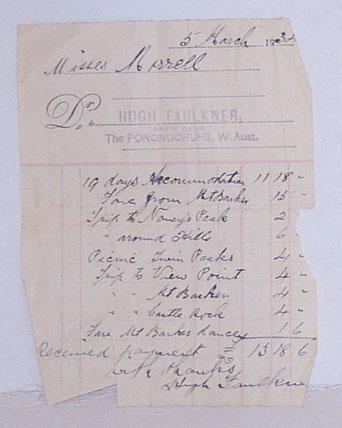 5 March 193
Misses Morrell
Dr. HUGH FAULKNER,
The PORONGORUPS, W. Aust.
19 days Accommodation 11 18 -
Fare from Mt Barker 15 -
Trip to Nancy's Peak 2 -
" around Hills 6 -
Picnic Twin Peaks 4 -
Trip to View Point 4 -
" " Mt Barker 4 -
" " Castle Rock 4 -
Fare Mt Barker 1 6
Received payment 13 18 6
with thanks
Hugh Faulkner